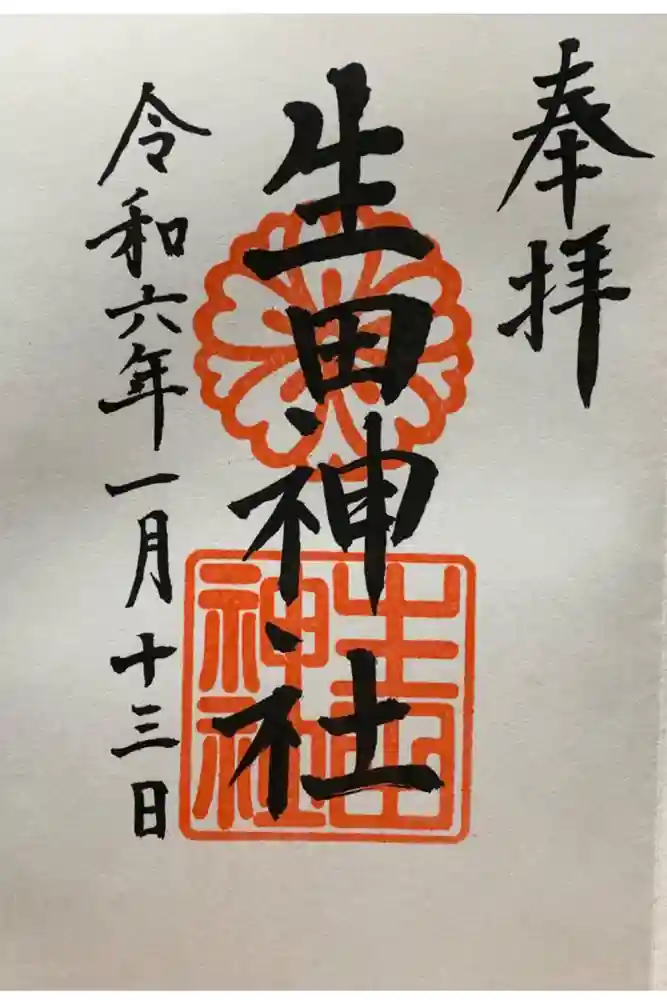 奉拝
生田神社
生田
神社
令和六年一月十三日